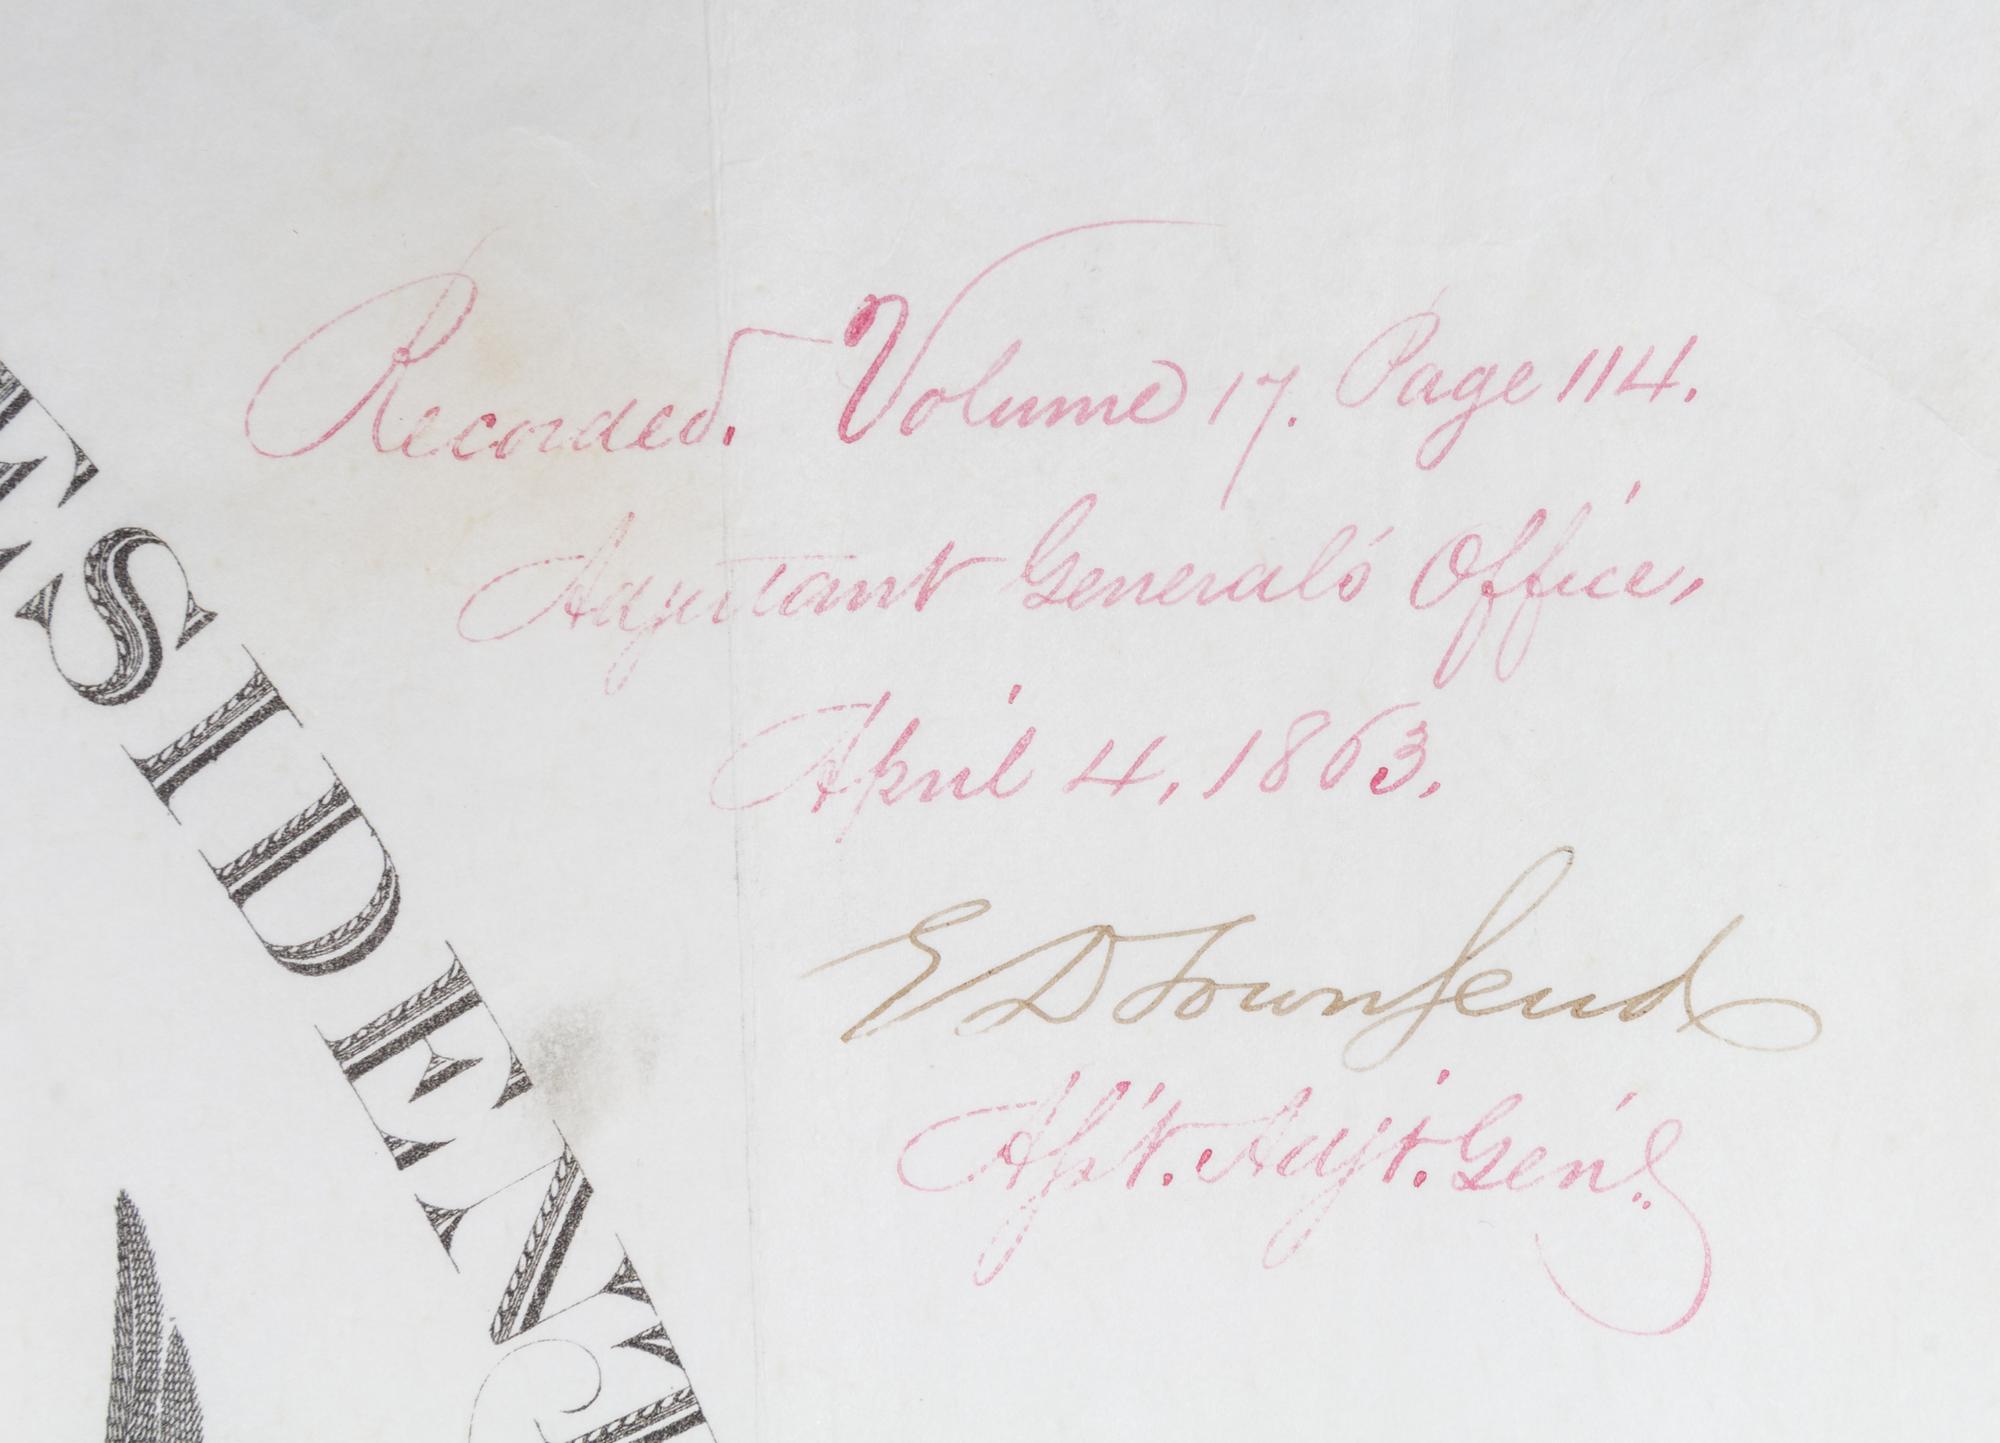 Recorded. Volume 17. Page 114.
Adjutant General's Office,
April 4, 1863.
E D Townsend
Ass't. Adjt. Gen'l.
ESIDENT